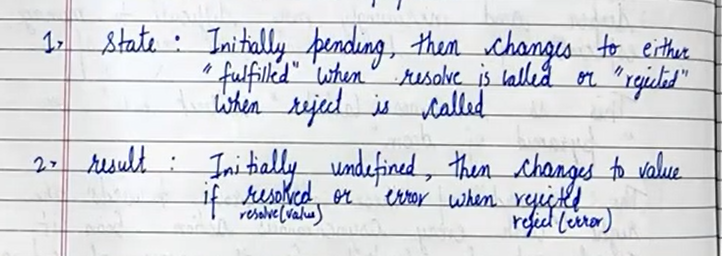 1> State : Initially pending, then changes to either
"fulfilled" when resolve is called or "rejected"
when reject is called
2> result : Initially undefined, then changes to value
if resolved or error when rejected
resolve(value) reject(error)